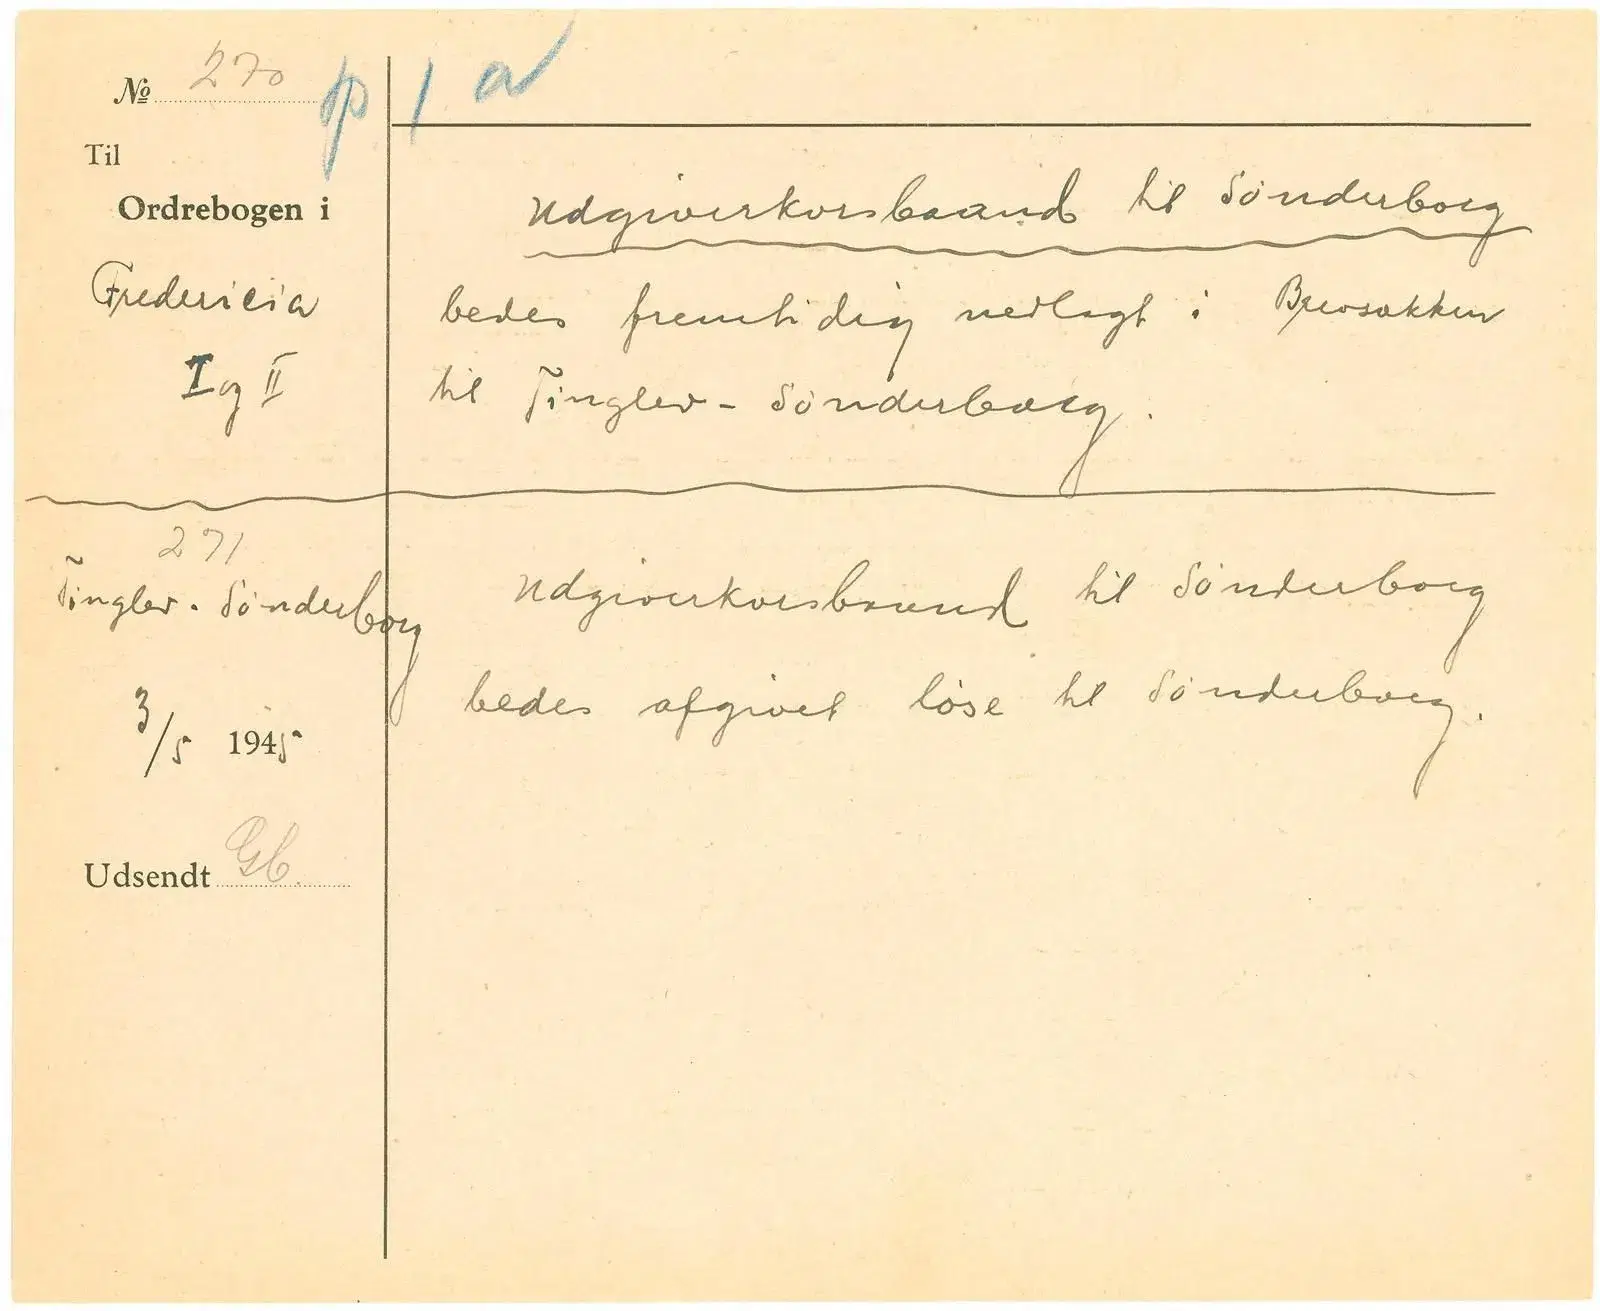 № 270
Til
Ordrebogen i
Fredericia
I og II
Udgiverkorsbaand til Sönderborg
bedes fremtidig nedlagt i Brevsækken
til Tinglev - Sönderborg.
271
Tinglev - Sönderborg
3/5 1945
Udsendt Gb.
Udgiverkorsbaand til Sönderborg
bedes afgivet löse til Sönderborg.